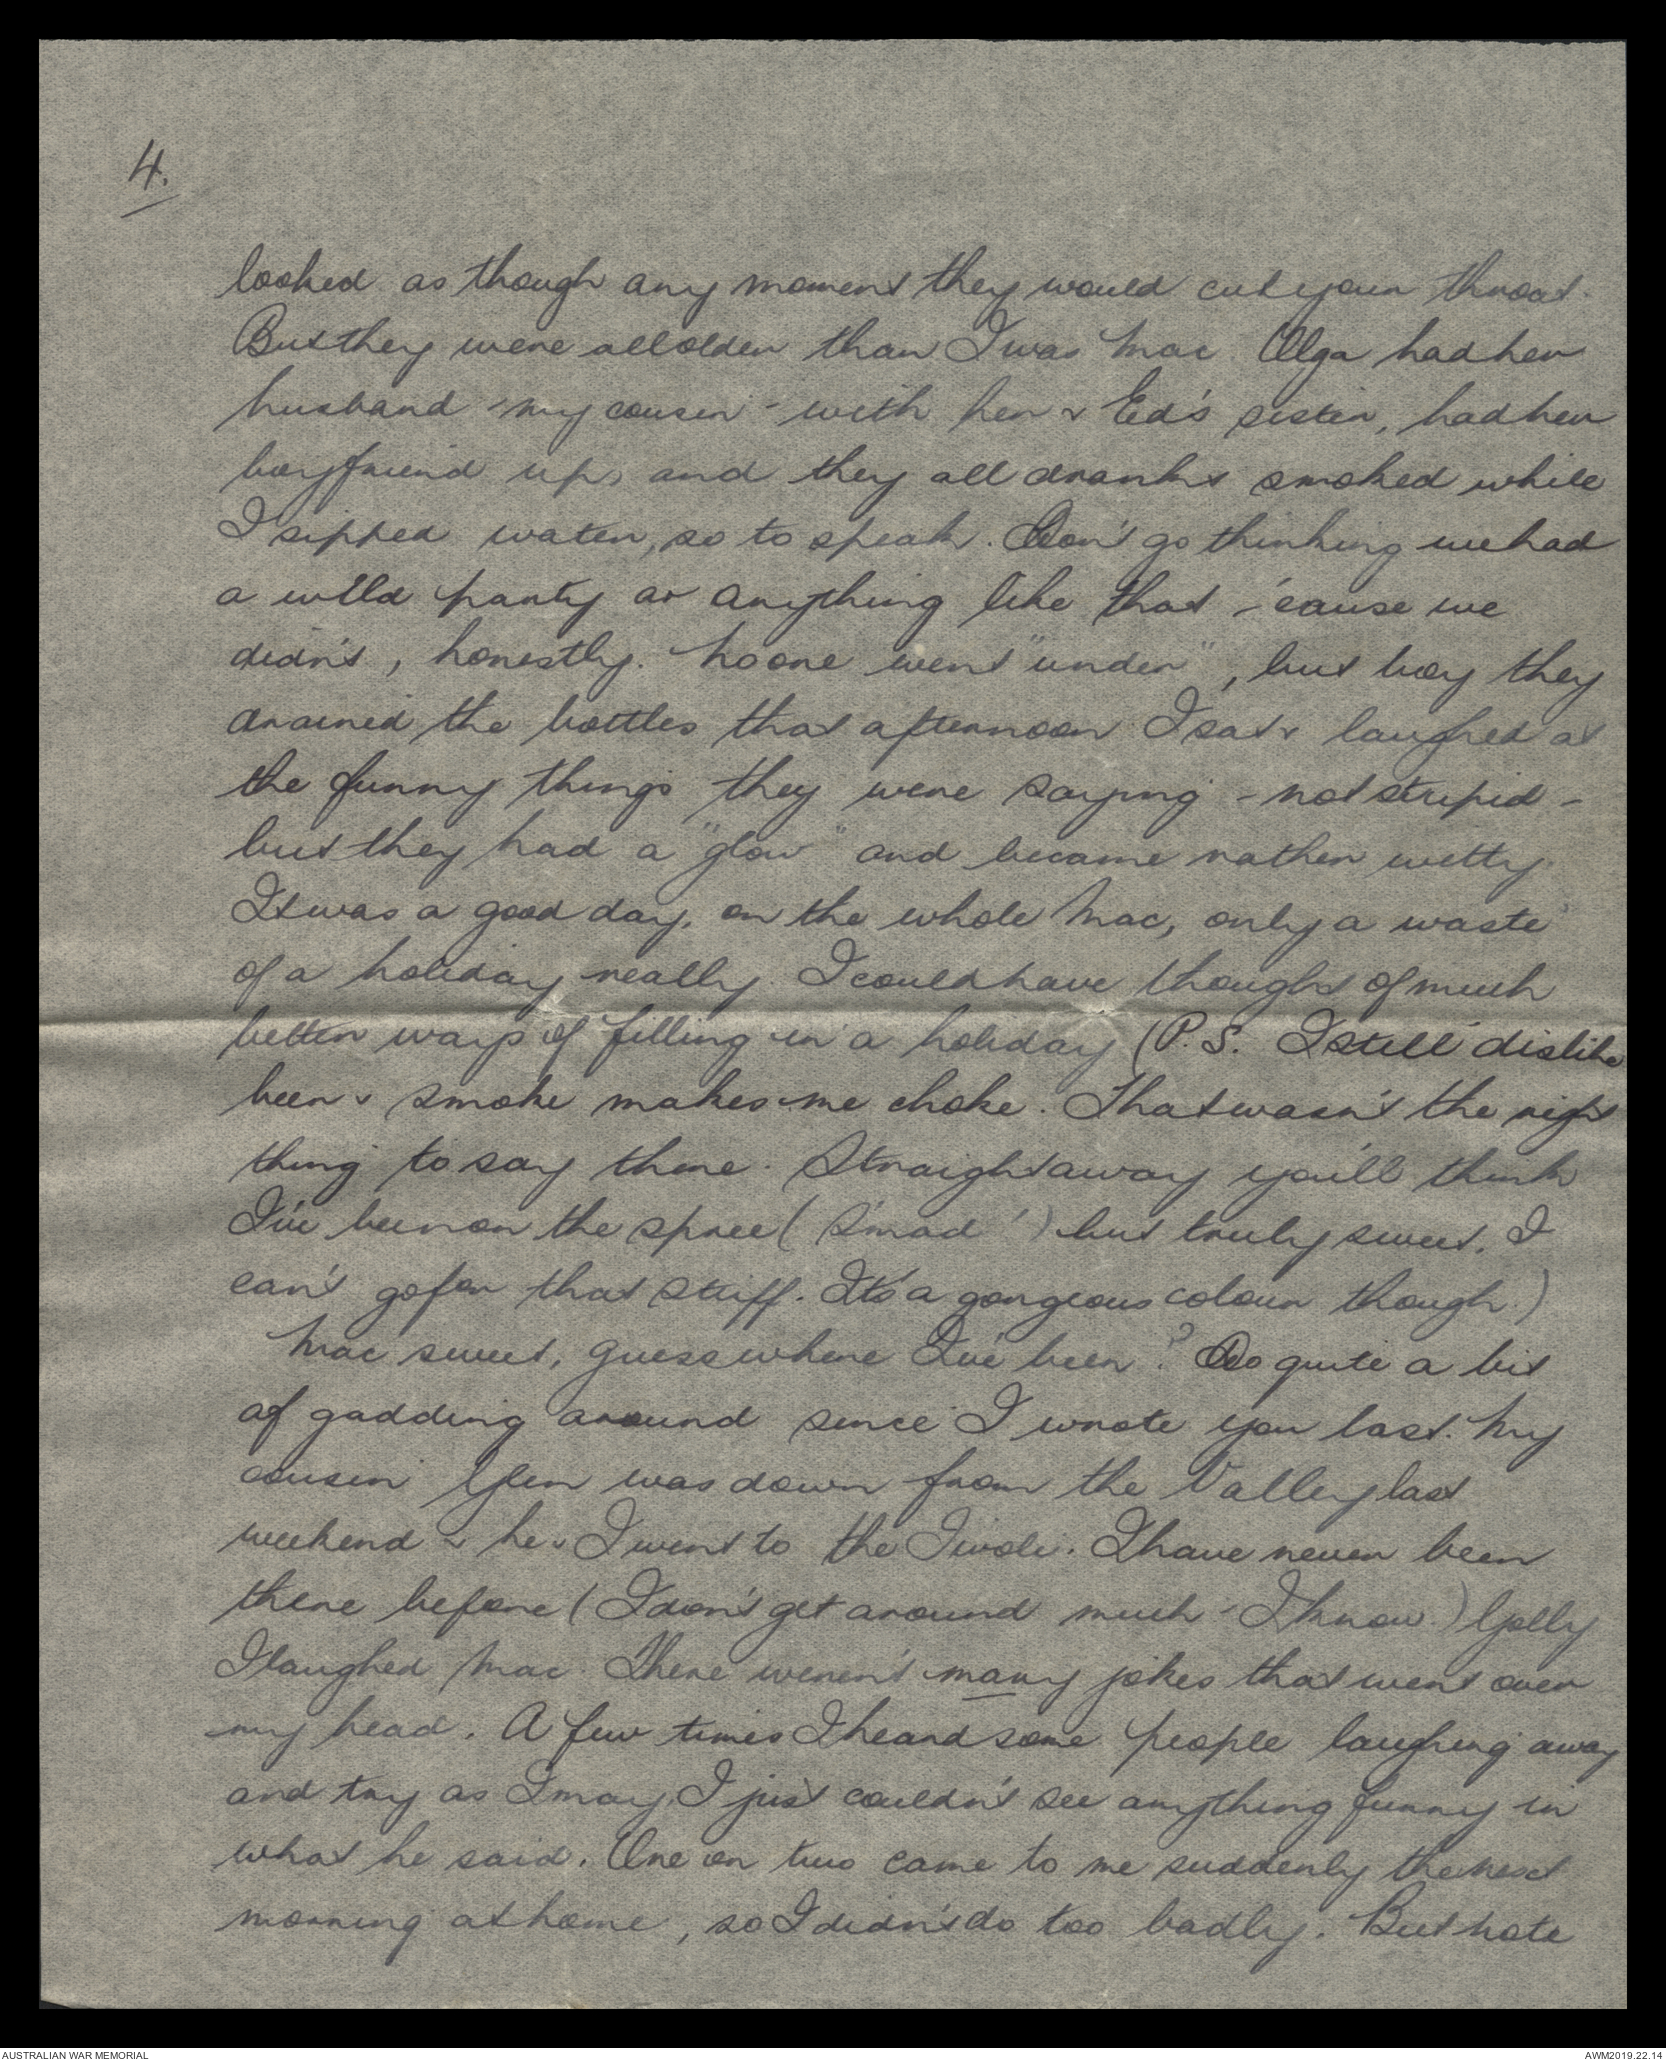 4.
looked as though any moment they would cut your throat.
But they were all older than I was Mac. Olga had her
husband - my cousin - with her & Ed's sister, had her
boyfriend up, and they all drank & smoked while
I sipped water, so to speak. Don't go thinking we had
a wild party or anything like that - 'cause we
didn't, honestly. No one went "under", but boy they
drained the bottles that afternoon. I sat & laughed at
the funny things they were saying - not stupid -
but they had a "glow" and became rather witty.
It was a good day, on the whole Mac, only a waste
of a holiday really. I could have thought of much
better ways of filling in a holiday (P.S. I still dislike
beer & smoke makes me choke. That wasn't the right
thing to say there. Straight away you'll think
I've been on the spree ( S'mad ! ) but truly sweet, I
can't go for that stuff. It's a gorgeous colour though.)
Mac sweet, guess where I've been? Do quite a bit
of gadding around since I wrote you last. My
cousin Glen was down from the Valley last
weekend & he & I went to the Tivoli. I have never been
there before (I don't get around much - I know.) Golly
I laughed Mac. There weren't many jokes that went over
my head. A few times I heard some people laughing away
and try as I may, I just couldn't see anything funny in
what he said. One or two came to me suddenly the next
morning at home, so I didn't do too badly. But note
AUSTRALIAN WAR MEMORIAL
AWM2019.22.14